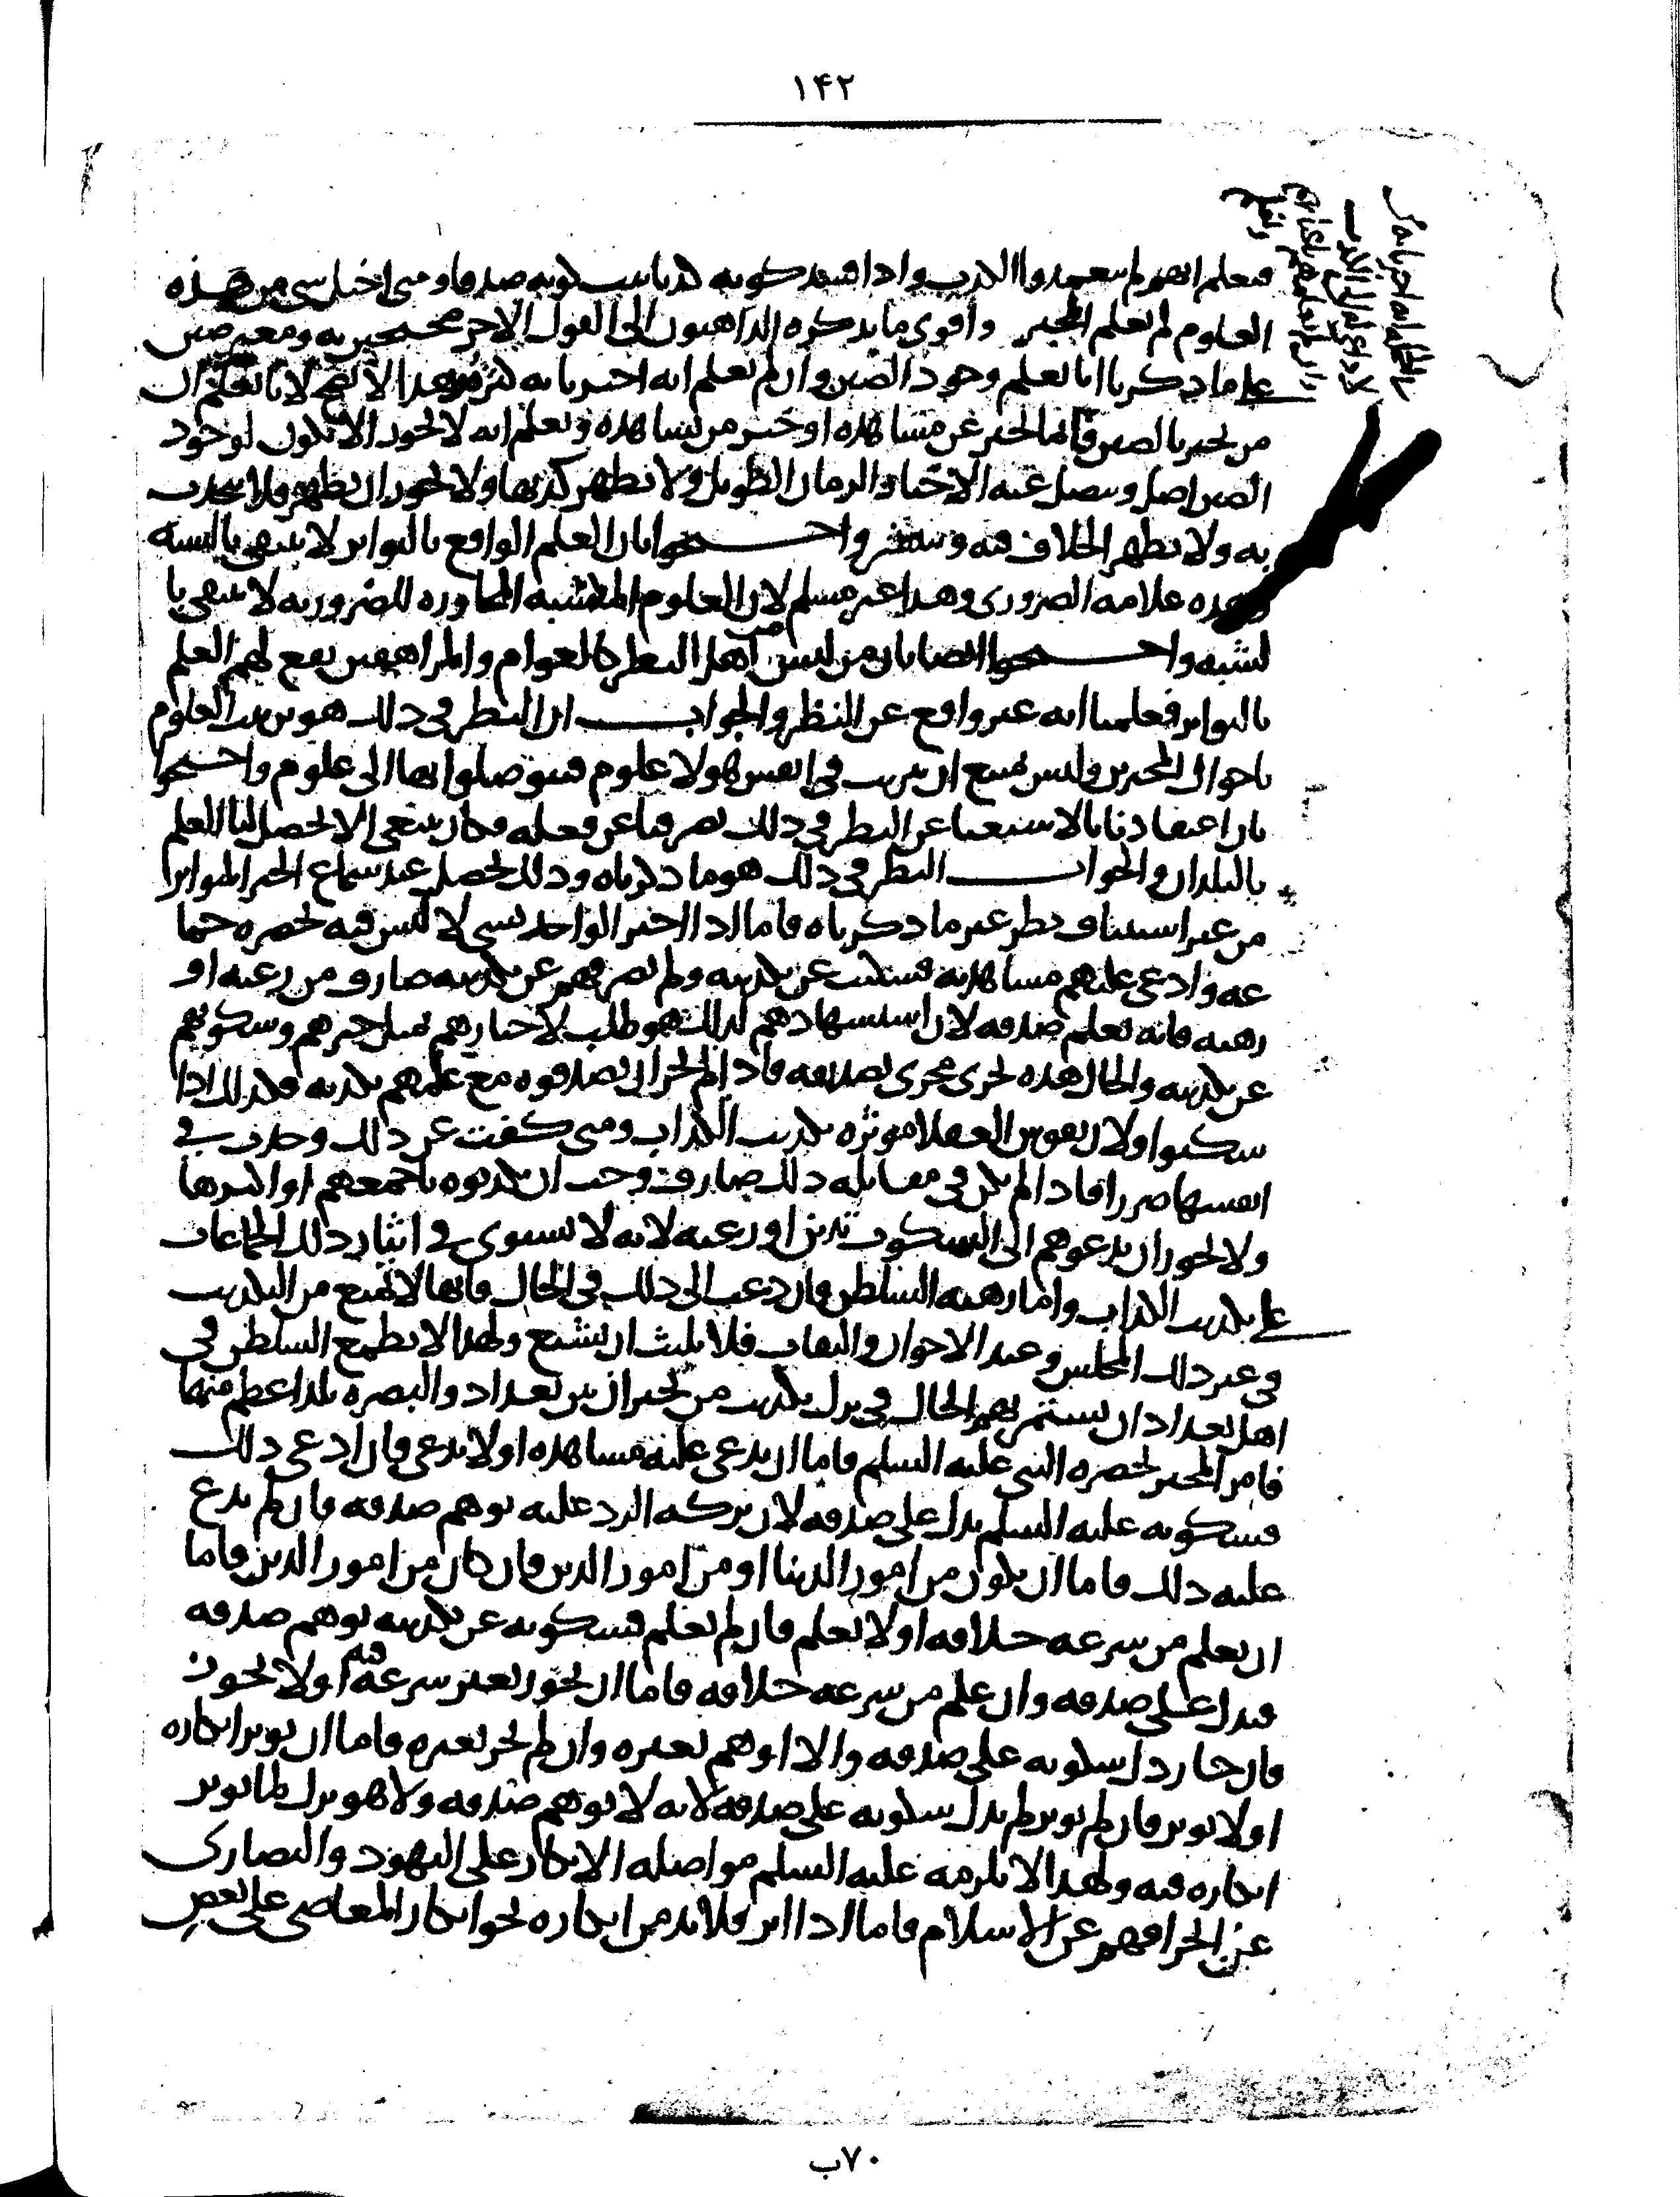 ١٤٢
فنعلم انهم لم يتعمدوا الكذب واذا فسد كونه كذبا ثبت كونه صدقا ومتى اختل شي من هذه
العلوم لم نعلم المخبر واقوى ما يذكره الذاهبون الى القول الاخر محتجين به ومعترضين
على ما ذكرنا انا نعلم وجود الصين وان لم نعلم انه اخبرنا به كثير وهذا لا يصح لانا نعلم ان
من يخبر بالصين فانما يخبر عن مشاهده او خبر من شاهده ونعلم انه لا يجوز الا يكون لوجود
الصين اصل ويتصل عنه الاخبار الزمان الطويل ولا يظهر كذبها ولا يجوز ان يظهر فلا يتحدث
به ولا يظهر الخلاف فيه وينتشر واحتجوا بان العلم الواقع بالتواتر لا ينتفي بالشبه
وهذه علامه الضروري وهذا غير مسلم لان العلوم المكتسبه المجاوره للضروريه لا تنتفي با
لشبه واحتجوا ايضا بان من ليس من اهل النظر كالعوام والمراهقين يقع لهم العلم
بالتواتر فعلمنا انه غير واقع عن النظر والجواب ان النظر في ذلك هو ترتيب العلوم
باحوال المخبرين وليس يمتنع ان يترتب في انفس هولا علوم فيتوصلوا بها الى علوم واحتجوا
بان اعتقادنا بالاستغنا عن النظر في ذلك يصرفنا عن فعله فكان ينبغي الا يحصل لنا العلم
بالبلدان والجواب النظر في ذلك هو ما ذكرناه وذلك يحصل عند سماع الخبر المتواتر
من غير استيناف نظر غير ما ذكرناه فاما اذا اخبر الواحد بشي لا لبس فيه بحضره جما
عه وادعى عليهم مشاهدته فسكتت عن تكذيبه ولم يصرفهم عن تكذيبه صارف من رغبه او
رهبه فانه نعلم صدقه لان استشهادهم لذلك هو طلب لاخبارهم بمثل خبرهم وسكوتهم
عن تكذيبه والحال هذه يجري مجرى تصديقه فاذا لم يجز ان يصدقوه مع علمهم بكذبه فكذلك اذا
سكتوا ولان نفوس العقلا موثره تكذيب الكذاب ومتى كفت عن ذلك وجدت في
انفسها ضررا فاذا لم يكن في مقابله ذلك صارف وجب ان يكذبوه باجمعهم او اكثرها
ولا يجوز ان يدعوهم الى السكوت تدين او رغبه لانه لا تستوي في ايثار ذلك الجماعات
على تكذيب الكذاب واما رهبه السلطن فان دعت الى ذلك في الحال فانها لا تمنع من التكذيب
في غير ذلك المجلس وعند الاخوان والثقات فلا يلبث ان يشيع ولهذا لا يطمع السلطن في
اهل بغداد ان يستمر بهم الحال في ترك تكذيب من يخبر ان بين بغداد والبصره بلدا اعظم منها
فاما المخبر بحضره النبي عليه السلم فاما ان يدعي عليه مشاهده او لا يدعي فان ادعى ذلك
فسكوته عليه السلم يدل على صدقه لان تركه الرد عليه يوهم صدقه فان لم يدع
عليه ذلك فاما ان يكون من امور الدنيا او من امور الدين فان كان من امور الدين فاما
ان يعلم من شرعه خلافه او لا يعلم فان لم يعلم فسكوته عن تكذيبه يوهم صدقه
فدل على صدقه وان علم من شرعه خلافه فاما ان يجوز تغير شرعه فيه او لا يجوز
فان جاز دل سكوته على صدقه والا اوهم تغيره وان لم يجز تغيره فاما ان يوثر انكاره
او لا يوثر فان لم يوثر لم يدل سكوته على صدقه لانه لا يوهم صدقه ولا هو ترك لما يوثر
انكاره فيه ولهذا لا يلزمه عليه السلم مواصله الانكار على اليهود والنصارى
عن انحرافهم عن الاسلام فاما اذا اثر فلا بد من انكاره نحو انكار المعاصي على بعض
٧٠ب